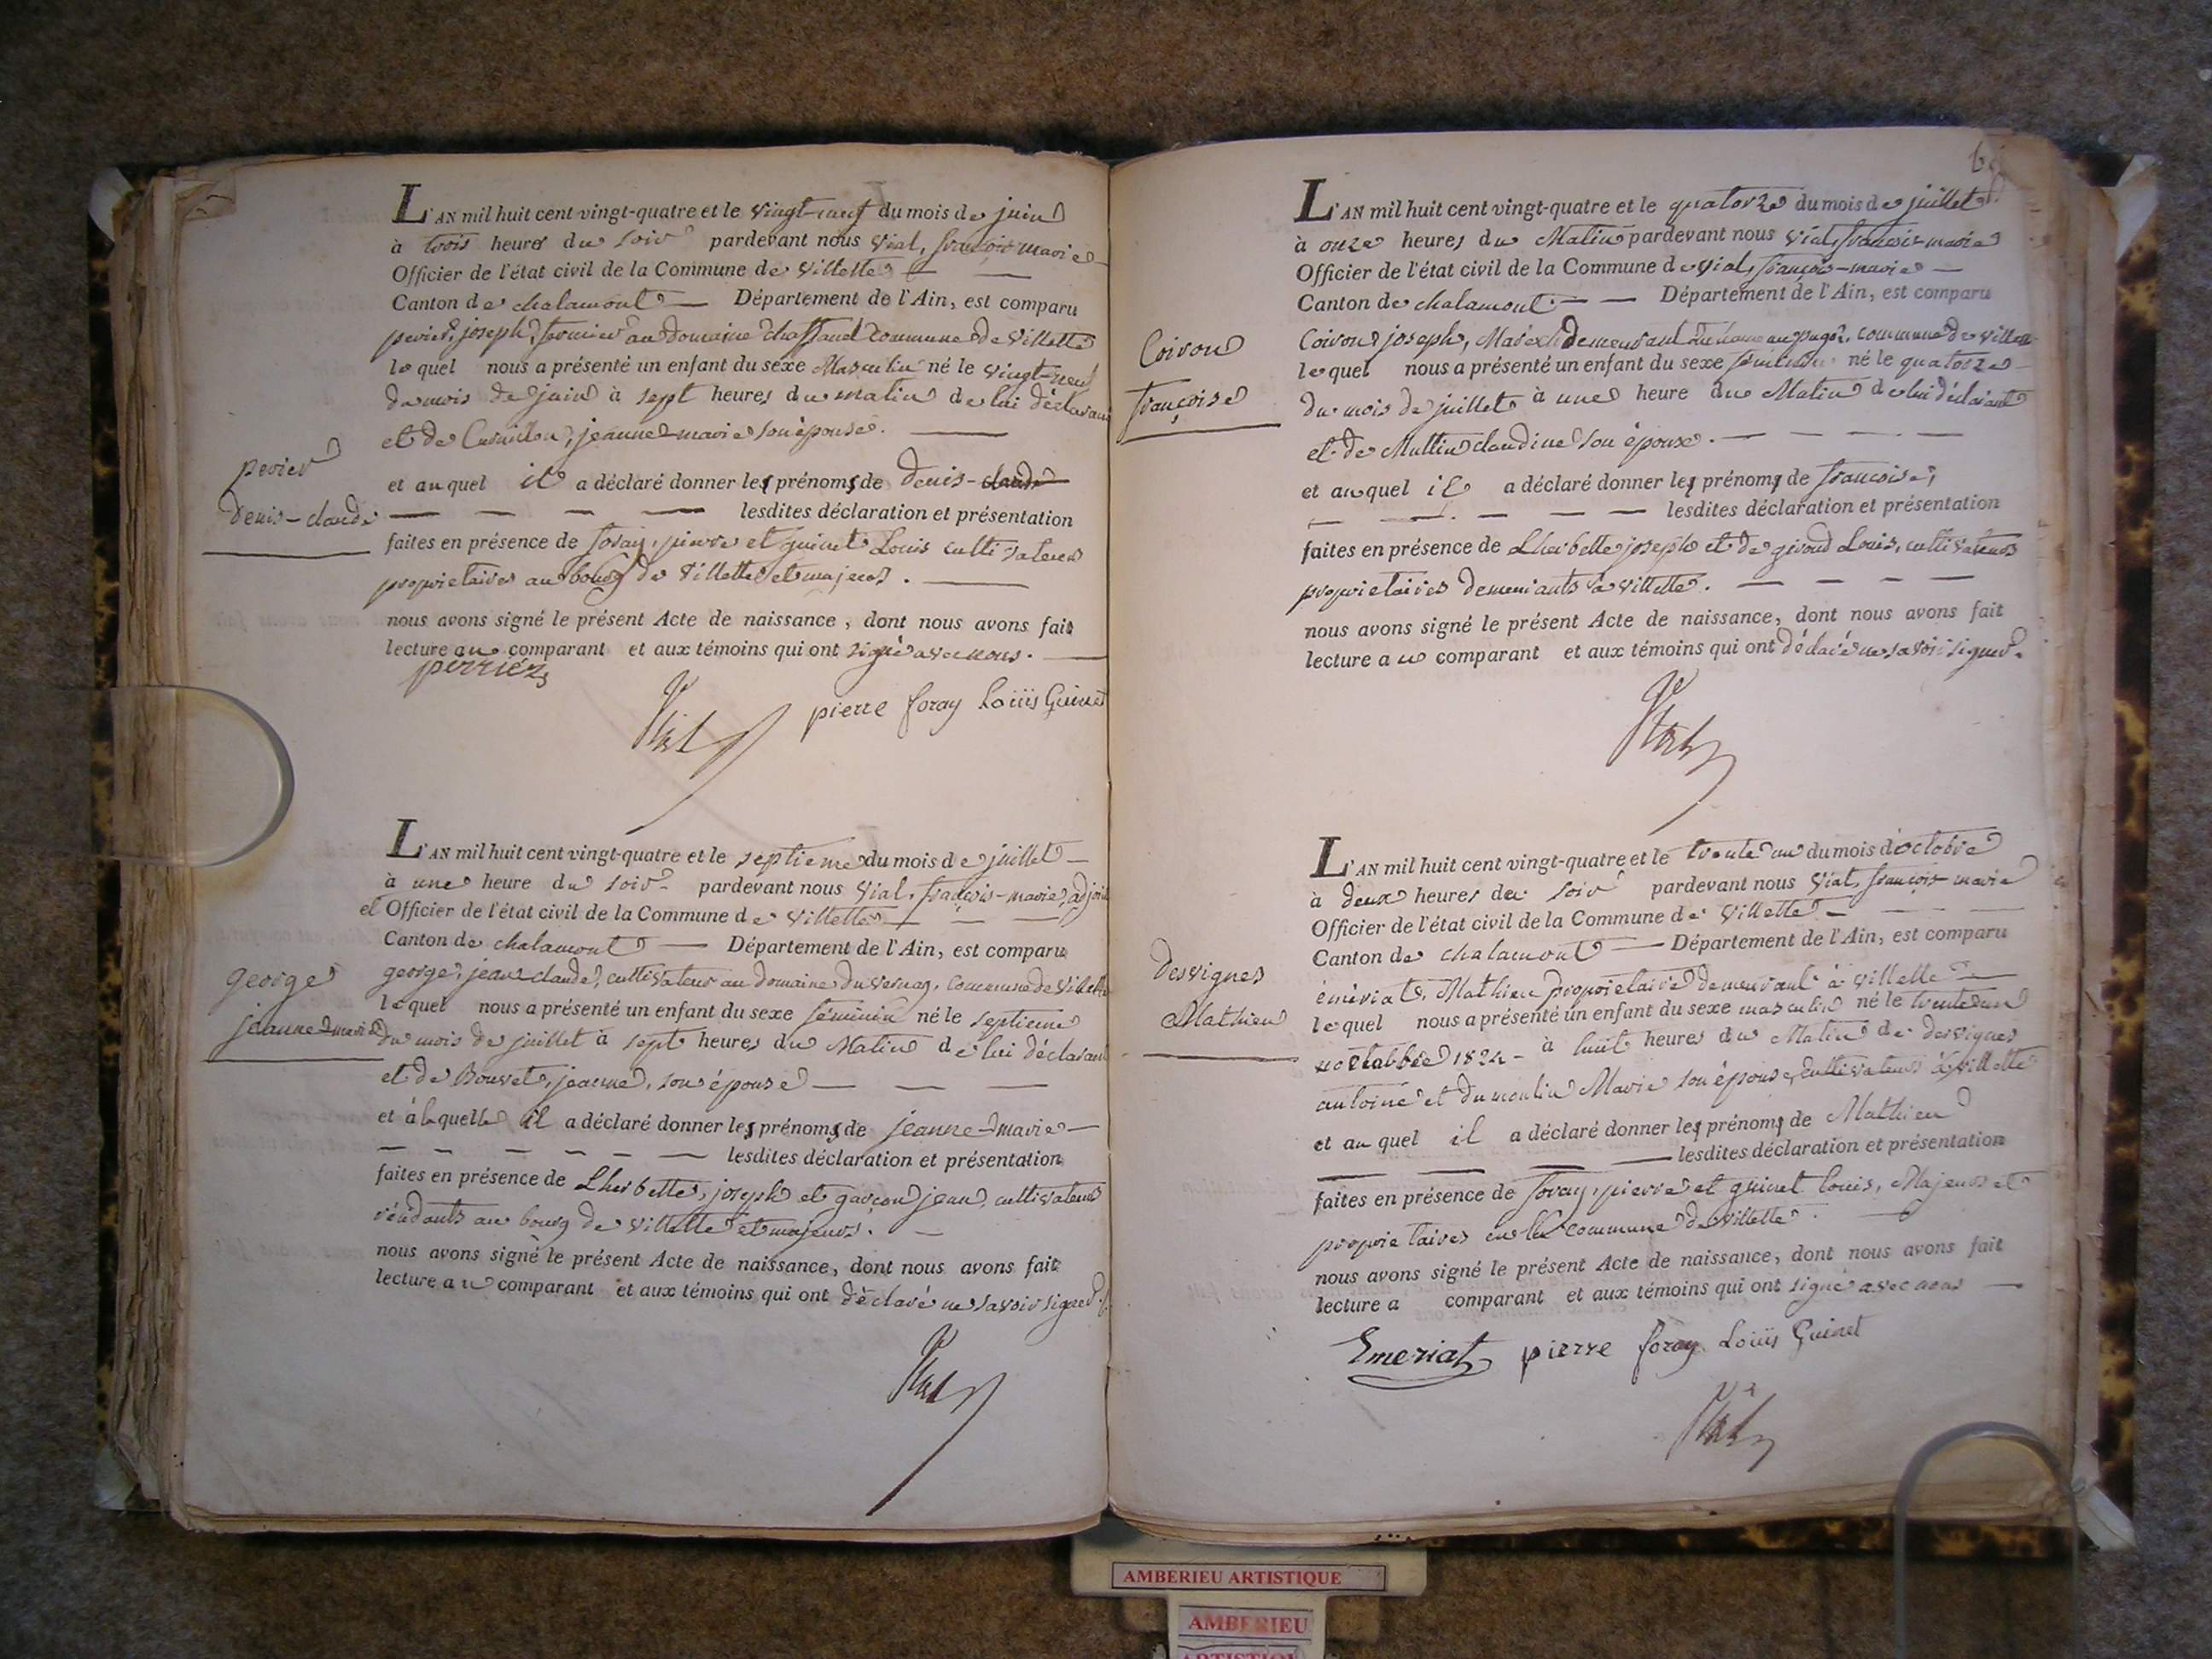 L'AN mil huit cent vingt-quatre et le vingt-neuf du mois de juin
à trois heures du soir pardevant nous Vial, françois marie
Officier de l'état civil de la Commune de Villette
Canton de chalamont Département de l'Ain, est comparu
perier, joseph, fermier au domaine chaffaud commune de Villette
lequel nous a présenté un enfant du sexe Masculin né le vingt-neuf
du mois de juin à sept heures du matin de lui déclarant
et de jeanne-marie son épouse.
perier
denis-claude
et auquel il a déclaré donner les prénoms de Denis-claude
lesdites déclaration et présentation
faites en présence de foray, pierre et guinet Louis cultivateurs
propriétaires au bourg de Villette et majeurs.
nous avons signé le présent Acte de naissance, dont nous avons fait
lecture au comparant et aux témoins qui ont signé avec nous.
perriez
pierre foray Loüis Guinet
Vial
L'AN mil huit cent vingt-quatre et le septieme du mois de juillet
à une heure du soir pardevant nous Vial, françois-marie, adjoint
et Officier de l'état civil de la Commune de Villette
Canton de chalamont Département de l'Ain, est comparu
george
jeanne-marie
george, jean-claude, cultivateur au domaine du vernay, commune de Villette
lequel nous a présenté un enfant du sexe féminin né le septieme
du mois de juillet à sept heures du Matin de lui déclarant
et de Bouvet, jeanne, son épouse
et à laquelle il a déclaré donner les prénoms de jeanne-marie
lesdites déclaration et présentation
faites en présence de Lherbette, joseph et garçon jean, cultivateurs
résidants au bourg de Villette et majeurs.
nous avons signé le présent Acte de naissance, dont nous avons fait
lecture au comparant et aux témoins qui ont déclaré ne savoir signer.
Vial
L'AN mil huit cent vingt-quatre et le quatorze du mois de juillet
à onze heures du Matin pardevant nous Vial, françois-marie
Officier de l'état civil de la Commune de Vial, françois-marie
Canton de chalamont Département de l'Ain, est comparu
Coiron
françoise
Coiron joseph, demeurant commune de Villette
lequel nous a présenté un enfant du sexe feminin né le quatorze
du mois de juillet à une heure du Matin de lui déclarant
et de Mullin claudine son épouse.
et auquel il a déclaré donner les prénoms de françoise,
lesdites déclaration et présentation
faites en présence de Lherbette joseph et de giroud Louis, cultivateurs
propriétaires demeurants à Villette.
nous avons signé le présent Acte de naissance, dont nous avons fait
lecture au comparant et aux témoins qui ont déclaré ne savoir signer.
Vial
L'AN mil huit cent vingt-quatre et le trente un du mois d'octobre
à deux heures du soir pardevant nous Vial, françois-marie
Officier de l'état civil de la Commune de Villette
Canton de chalamont Département de l'Ain, est comparu
Desvignes
Mathieu
émériat, Mathieu propriétaire demeurant à Villette
lequel nous a présenté un enfant du sexe masculin né le trente un
octobre 1824 à huit heures du Matin de desvignes
antoine et dumoulin Marie son épouse, cultivateurs à Villette
et auquel il a déclaré donner les prénoms de Mathieu
lesdites déclaration et présentation
faites en présence de foray, pierre et guinet louis, Majeurs et
propriétaires en la commune de Villette.
nous avons signé le présent Acte de naissance, dont nous avons fait
lecture a comparant et aux témoins qui ont signé avec nous
Emeriat pierre foray Loüis Guinet
Vial
AMBERIEU ARTISTIQUE
AMBERIEU
ARTISTIQUE